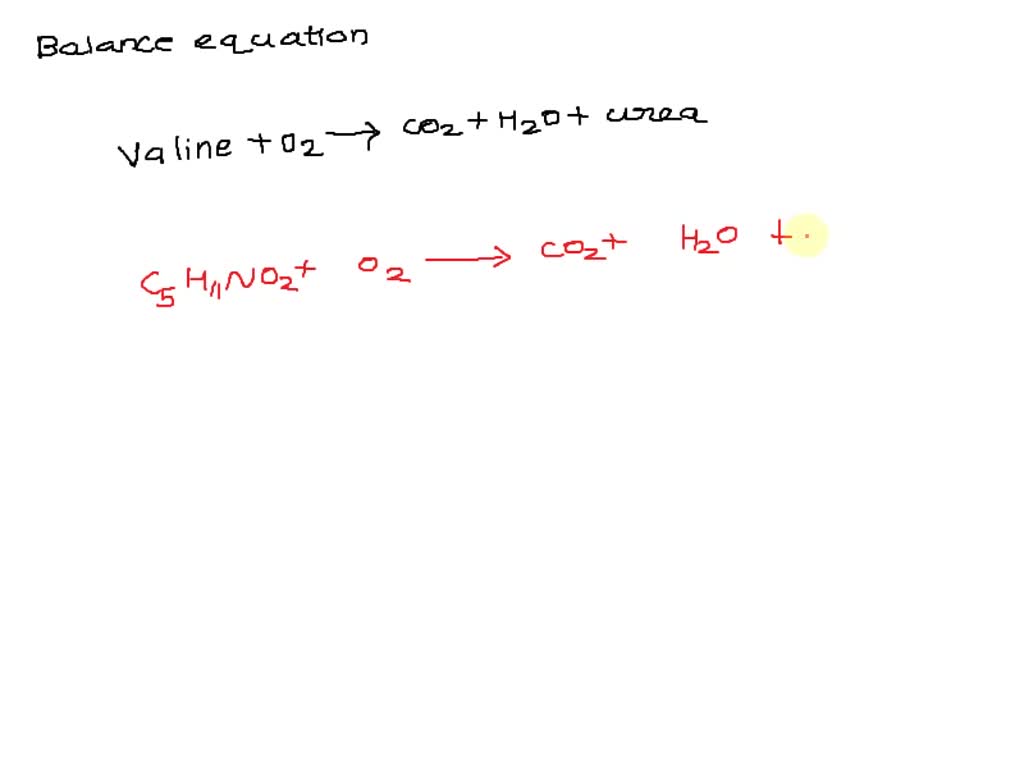 Balance equation
Valine + O2 → CO2 + H2O + urea
C5H11NO2 + O2 → CO2 + H2O + .